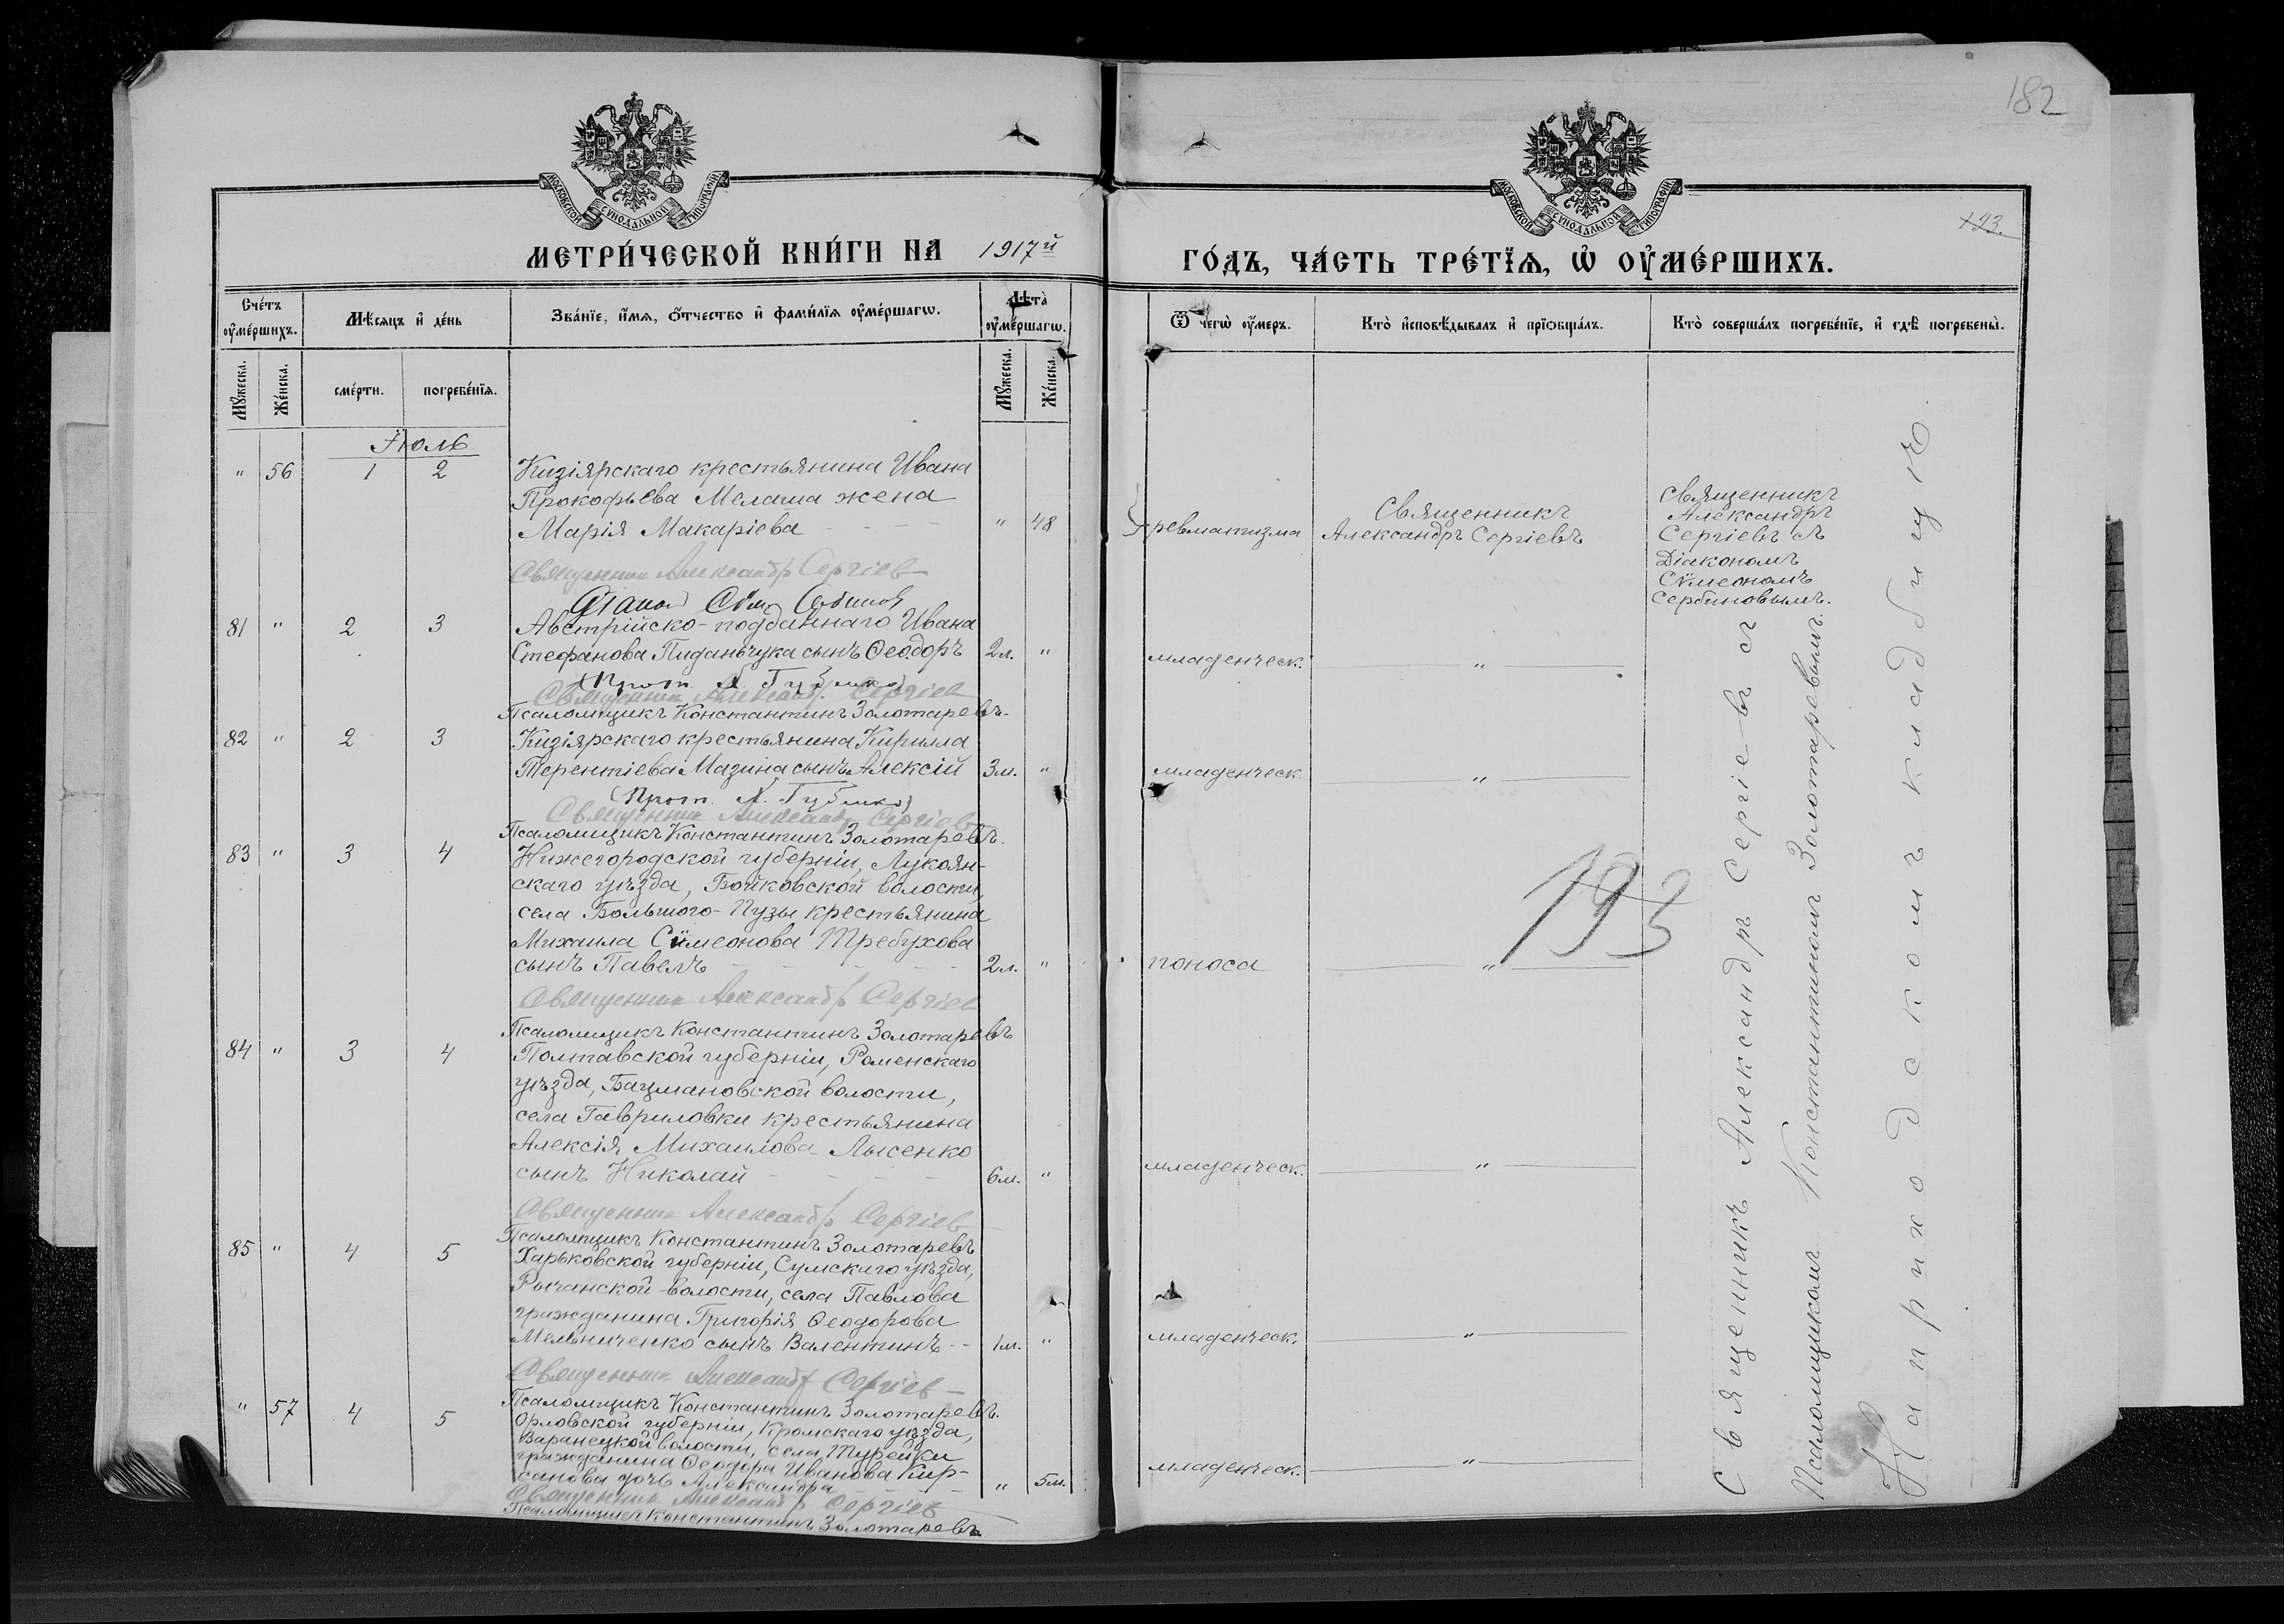 182
МОСКОВСКОЙ СѴНОДАЛЬНОЙ ТИПОГРАФІИ
МОСКОВСКОЙ СѴНОДАЛЬНОЙ ТИПОГРАФІИ
193.
МЕТРИ́ЧЕСКОЙ КНИ́ГИ НА 1917й
ГО́ДЪ, ЧА́СТЬ ТРЕ́ТЇѦ, Ѡ҆ ОУ҆МЕ́РШИХЪ.
Сче́тъ оу҆ме́ршихъ.
Мѣ́сяцъ и҆ де́нь
Зва́нїе, и҆́мѧ, ѻ҆́тчество и҆ фами́лїѧ оу҆ме́ршагѡ.
Лѣ́та оу҆ме́ршагѡ.
Ѿ чегѡ̀ оу҆́меръ.
Кто̀ и҆сповѣ́дывалъ и҆ прїѡбща́лъ.
Кто̀ соверша́лъ погребе́нїе, и҆ гдѣ̀ погребены̀.
Мꙋ́жеска.
Же́нска.
сме́рти.
погребе́нїѧ.
Мꙋ́жеска.
Же́нска.
Іюль
" 56 1 2 Кизіярскаго крестьянина Ивана
Прокофьева Мелаша жена
Марія Макаріева " 48
ревматизма
Священникъ
Александръ Сергіевъ
Священникъ
Александръ
Сергіевъ съ
Діакономъ
Сѵмеономъ
Сербиновымъ.
Священник Александр Сергіев
81 " 2 3 Австрійско-подданнаго Ивана
Стефанова Пиданьчука сынъ Ѳеодоръ 2л. "
младенческ. "
Прот. Л. Губенко
Священник Александ. Сергіев
Псаломщикъ Константинъ Золотаревъ.
82 " 2 3 Кизіярскаго крестьянина Кирилла
Терентіева Мазина сынъ Алексій 3м. "
младенческ. "
Прот. Л. Губенко
Священник Александр Сергіев
Псаломщикъ Константинъ Золотаревъ.
83 " 3 4 Нижегородской губерніи, Лукоян-
скаго уѣзда, Бойковской волости,
села Большого-Пузы крестьянина
Михаила Сѵмеонова Требухова
сынъ Павелъ 2л. "
поноса "
193
Священник Александр Сергіев
Псаломщикъ Константинъ Золотаревъ
84 " 3 4 Полтавской губерніи, Роменскаго
уѣзда, Бацмановской волости,
села Гавриловки крестьянина
Алексія Михаилова Лысенко
сынъ Николай 6м. "
младенческ. "
Священник Александр Сергіев
Псаломщикъ Константинъ Золотаревъ
85 " 4 5 Харьковской губерніи, Сумскаго уѣзда,
Рычанской волости, села Павлова
гражданина Григорія Ѳеодорова
Мельниченко сынъ Валентинъ 1м. "
младенческ. "
Священник Александр Сергіев
Псаломщикъ Константинъ Золотаревъ.
" 57 4 5 Орловской губерніи, Кромскаго уѣзда,
Варанецкой волости, села Турейки
гражданина Ѳеодора Иванова Кир-
санова дочь Александра " 5м.
младенческ. "
Священник Александр Сергіев
Псаломщикъ Константинъ Золотаревъ
Священникъ Александръ Сергіевъ съ
Псаломщикомъ Константиномъ Золотаревымъ.
На приходскомъ кладбищѣ.